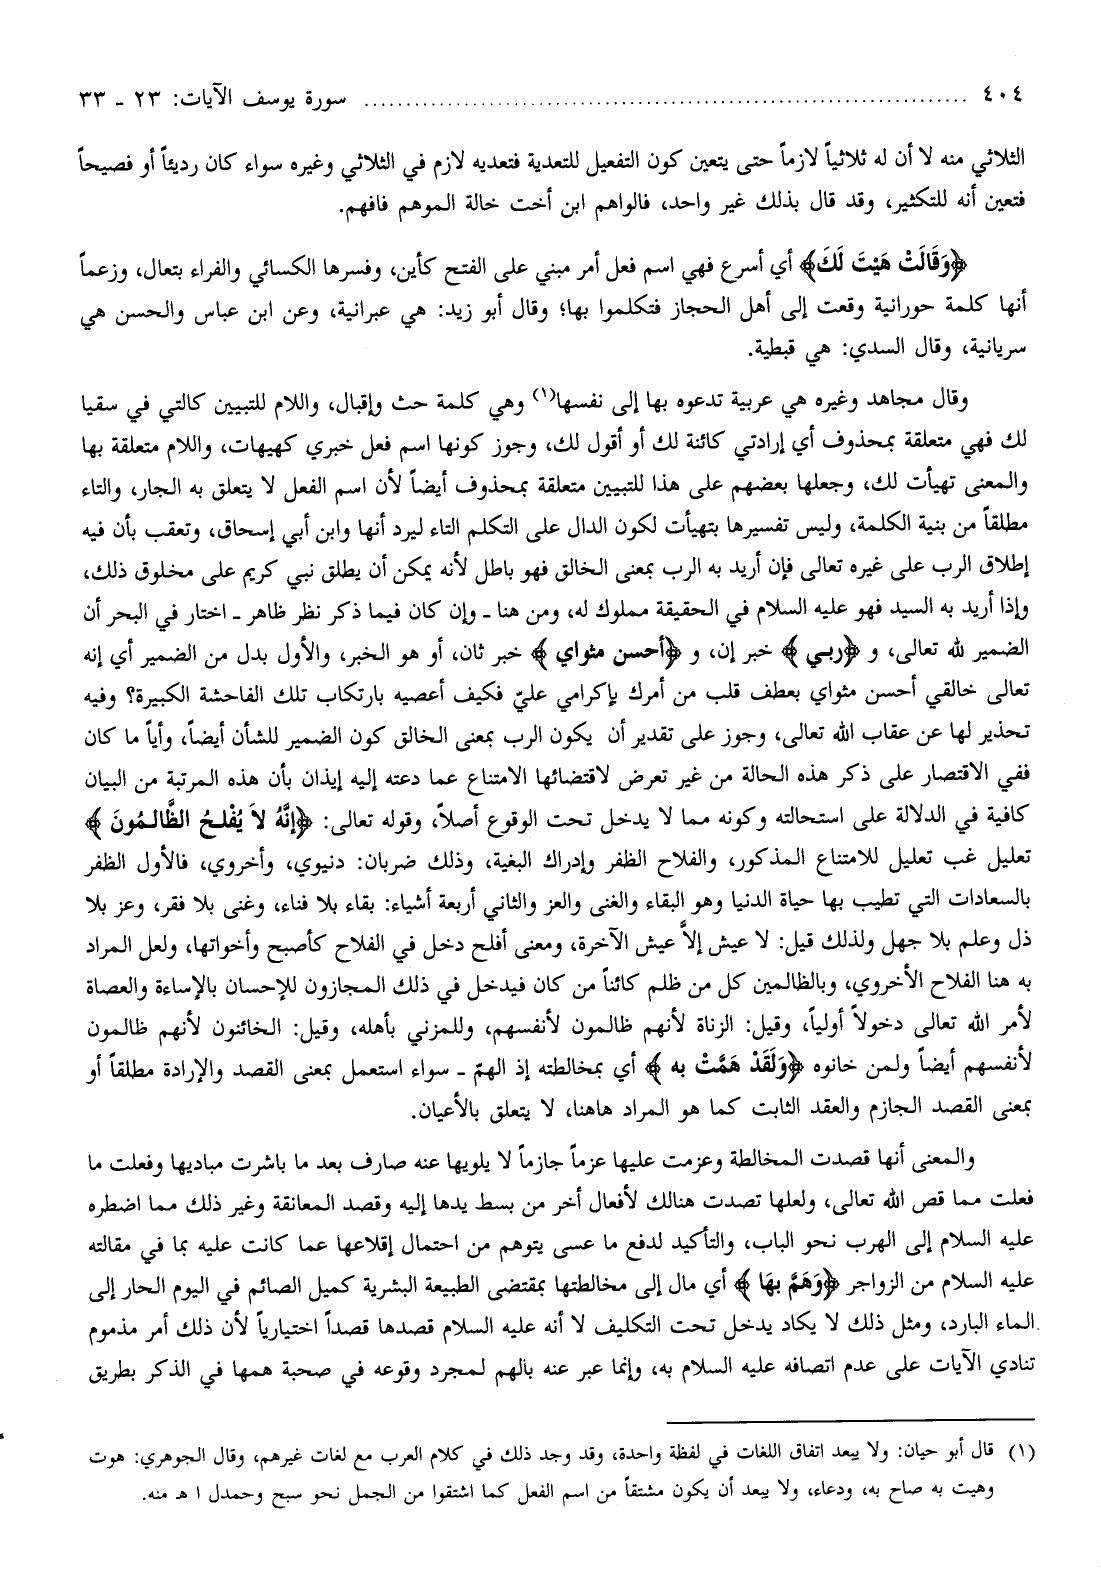 ٤٠٤ ........................ سورة يوسف الآيات: ٢٣ ـ ٣٣
الثلاثي منه لا أن له ثلاثياً لازماً حتى يتعين كون التفعيل للتعدية فتعديه لازم في الثلاثي وغيره سواء كان رديئاً أو فصيحاً
فتعين أنه للتكثير، وقد قال بذلك غير واحد، فالواهم ابن أخت خالة الموهم فافهم.
﴿وَقَالَتْ هَيْتَ لَكَ﴾ أي أسرع فهي اسم فعل أمر مبني على الفتح كأين، وفسرها الكسائي والفراء بتعال، وزعماً
أنها كلمة حورانية وقعت إلى أهل الحجاز فتكلموا بها؛ وقال أبو زيد: هي عبرانية، وعن ابن عباس والحسن هي
سريانية، وقال السدي: هي قبطية.
وقال مجاهد وغيره هي عربية تدعوه بها إلى نفسها(١) وهي كلمة حث وإقبال، واللام للتبيين كالتي في سقيا
لك فهي متعلقة بمحذوف أي إرادتي كائنة لك أو أقول لك، وجوز كونها اسم فعل خبري كهيهات، واللام متعلقة بها
والمعنى تهيأت لك، وجعلها بعضهم على هذا للتبيين متعلقة بمحذوف أيضاً لأن اسم الفعل لا يتعلق به الجار، والتاء
مطلقاً من بنية الكلمة، وليس تفسيرها بتهيأت لكون الدال على التكلم التاء ليرد أنها وابن أبي إسحاق، وتعقب بأن فيه
إطلاق الرب على غيره تعالى فإن أريد به الرب بمعنى الخالق فهو باطل لأنه يمكن أن يطلق نبي كريم على مخلوق ذلك،
وإذا أريد به السيد فهو عليه السلام في الحقيقة مملوك له، ومن هنا ـ وإن كان فيما ذكر نظر ظاهر ـ اختار في البحر أن
الضمير لله تعالى، و ﴿ربي﴾ خبر إن، و ﴿أحسن مثواي﴾ خبر ثان، أو هو الخبر، والأول بدل من الضمير أي إنه
تعالى خالقي أحسن مثواي بعطف قلب من أمرك بإكرامي عليّ فكيف أعصيه بارتكاب تلك الفاحشة الكبيرة؟ وفيه
تحذير لها عن عقاب الله تعالى، وجوز على تقدير أن يكون الرب بمعنى الخالق كون الضمير للشأن أيضاً، وأياً ما كان
ففي الاقتصار على ذكر هذه الحالة من غير تعرض لاقتضائها الامتناع عما دعته إليه إيذان بأن هذه المرتبة من البيان
كافية في الدلالة على استحالته وكونه مما لا يدخل تحت الوقوع أصلاً، وقوله تعالى: ﴿إنَّهُ لاَ يُفْلحُ الظَّالمُونَ﴾
تعليل غب تعليل للامتناع المذكور، والفلاح الظفر وإدراك البغية، وذلك ضربان: دنيوي، وأخروي، فالأول الظفر
بالسعادات التي تطيب بها حياة الدنيا وهو البقاء والغنى والعز والثاني أربعة أشياء: بقاء بلا فناء، وغنى بلا فقر، وعز بلا
ذل وعلم بلا جهل ولذلك قيل: لا عيش إلاَّ عيش الآخرة، ومعنى أفلح دخل في الفلاح كأصبح وأخواتها، ولعل المراد
به هنا الفلاح الأخروي، وبالظالمين كل من ظلم كائناً من كان فيدخل في ذلك المجازون للإحسان بالإساءة والعصاة
لأمر الله تعالى دخولاً أولياً، وقيل: الزناة لأنهم ظالمون لأنفسهم، وللمزني بأهله، وقيل: الخائنون لأنهم ظالمون
لأنفسهم أيضاً ولمن خانوه ﴿وَلَقَدْ هَمَّتْ به﴾ أي بمخالطته إذ الهمّ ـ سواء استعمل بمعنى القصد والإرادة مطلقاً أو
بمعنى القصد الجازم والعقد الثابت كما هو المراد هاهنا، لا يتعلق بالأعيان.
والمعنى أنها قصدت المخالطة وعزمت عليها عزماً جازماً لا يلويها عنه صارف بعد ما باشرت مباديها وفعلت ما
فعلت مما قص الله تعالى، ولعلها تصدت هنالك لأفعال أخر من بسط يدها إليه وقصد المعانقة وغير ذلك مما اضطره
عليه السلام إلى الهرب نحو الباب، والتأكيد لدفع ما عسى يتوهم من احتمال إقلاعها عما كانت عليه بما في مقالته
عليه السلام من الزواجر ﴿وَهَمَّ بهَا﴾ أي مال إلى مخالطتها بمقتضى الطبيعة البشرية كميل الصائم في اليوم الحار إلى
الماء البارد، ومثل ذلك لا يكاد يدخل تحت التكليف لا أنه عليه السلام قصدها قصداً اختيارياً لأن ذلك أمر مذموم
تنادي الآيات على عدم اتصافه عليه السلام به، وإنما عبر عنه بالهم لمجرد وقوعه في صحبة همها في الذكر بطريق
(١) قال أبو حيان: ولا يبعد اتفاق اللغات في لفظة واحدة، وقد وجد ذلك في كلام العرب مع لغات غيرهم، وقال الجوهري: هوت
وهيت به صاح به، ودعاء، ولا يبعد أن يكون مشتقاً من اسم الفعل كما اشتقوا من الجمل نحو سبح وحمدل ا هـ منه.